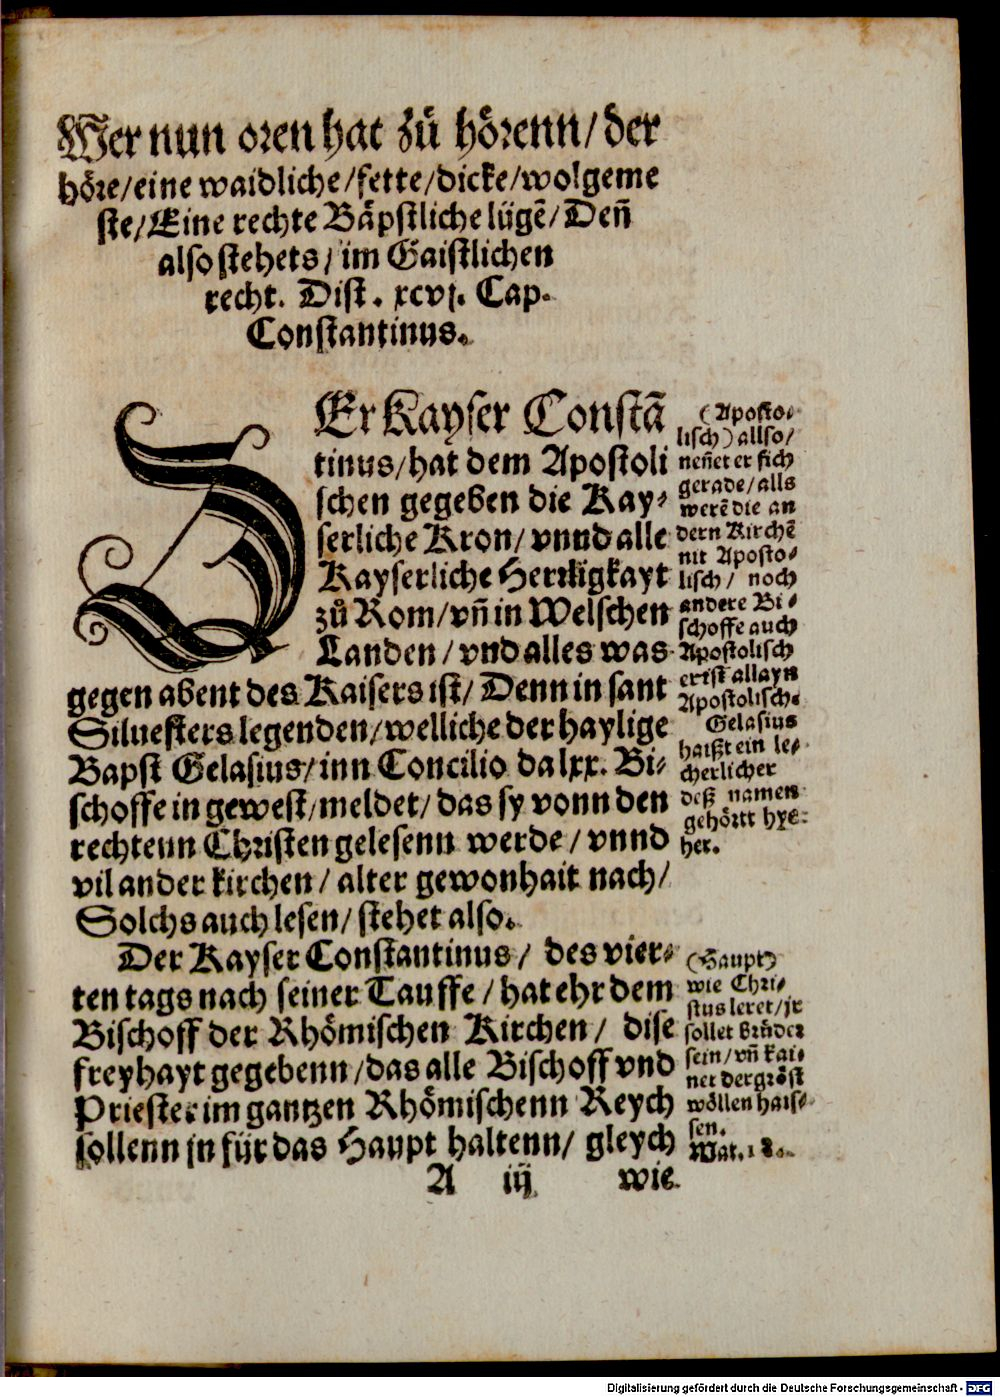 Wer nun oren hat zů hoͤrenn/der
hoͤre/eine waidliche/fette/dicke/wolgeme
ste/Eine rechte Baͤpstliche lügē/Deñ
also stehets/im Gaistlichen
recht. Dist. xcvj. Cap.
Constantinus.
DEr Kayser Constā
tinus/hat dem Apostoli
schen gegeben die Kay-
serliche Kron/vnnd alle
Kayserliche Herrligkayt
zů Rom/vñ in Welschen
Landen/vnd alles was
gegen abent des Kaisers ist/Denn in sant
Siluesters legenden/welliche der haylige
Bapst Gelasius/inn Concilio da lxx. Bi-
schoffe in gewest/meldet/das sy vonn den
rechtenn Christen gelesenn werde/vnnd
vil ander kirchen/alter gewonhait nach/
Solchs auch lesen/stehet also.
(Aposto-
lisch) allso/
neñet er sich
gerade/alls
werē die an
dern Kirchē
nit Aposto-
lisch/noch
andere Bi-
schoffe auch
Apostolisch
er ist allayn
Apostolisch.
Gelasius
haißt ein le-
cherlicher
deß namen
gehörtt hye-
her.
Der Kayser Constantinus/des vier-
ten tags nach seiner Tauffe/hat ehr dem
Bischoff der Rhoͤmischen Kirchen/dise
freyhayt gegebenn/das alle Bischoff vnd
Priester im gantzen Rhoͤmischenn Reych
sollenn jn für das Haupt haltenn/gleych
(Haupt)
wie Chri-
stus leret/jr
sollet Brüder
sein/vñ kai-
ner der groͤst
woͤllen hais-
sen.
Mat. 18.
A iij wie
Digitalisierung gefördert durch die Deutsche Forschungsgemeinschaft - DFG